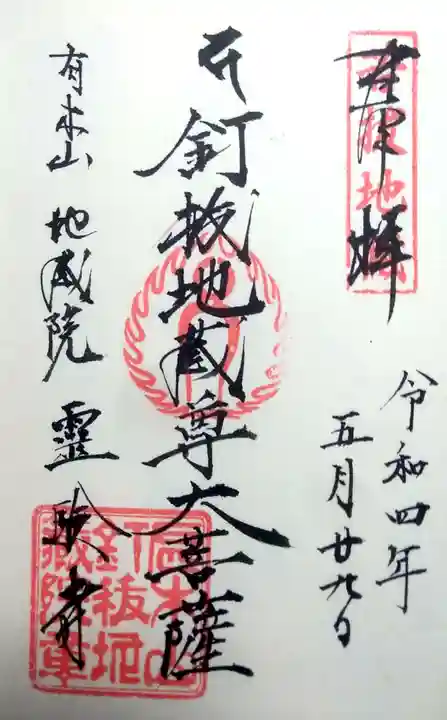 奉拝
令和四年
五月廿九日
釘抜地蔵尊大菩薩
有木山 地蔵院 霊験寺